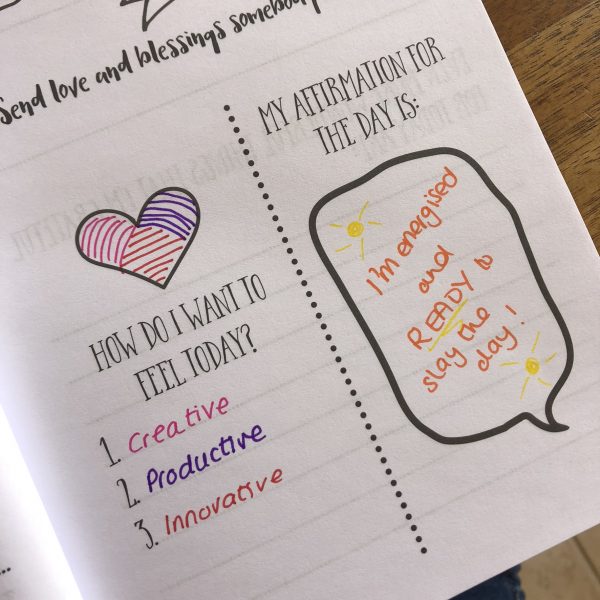 Send love and blessings somebody
MY AFFIRMATION FOR
THE DAY IS:
I'm energised
and
READY to
slay the
day!
HOW DO I WANT TO
FEEL TODAY?
1. Creative
2. Productive
3. Innovative